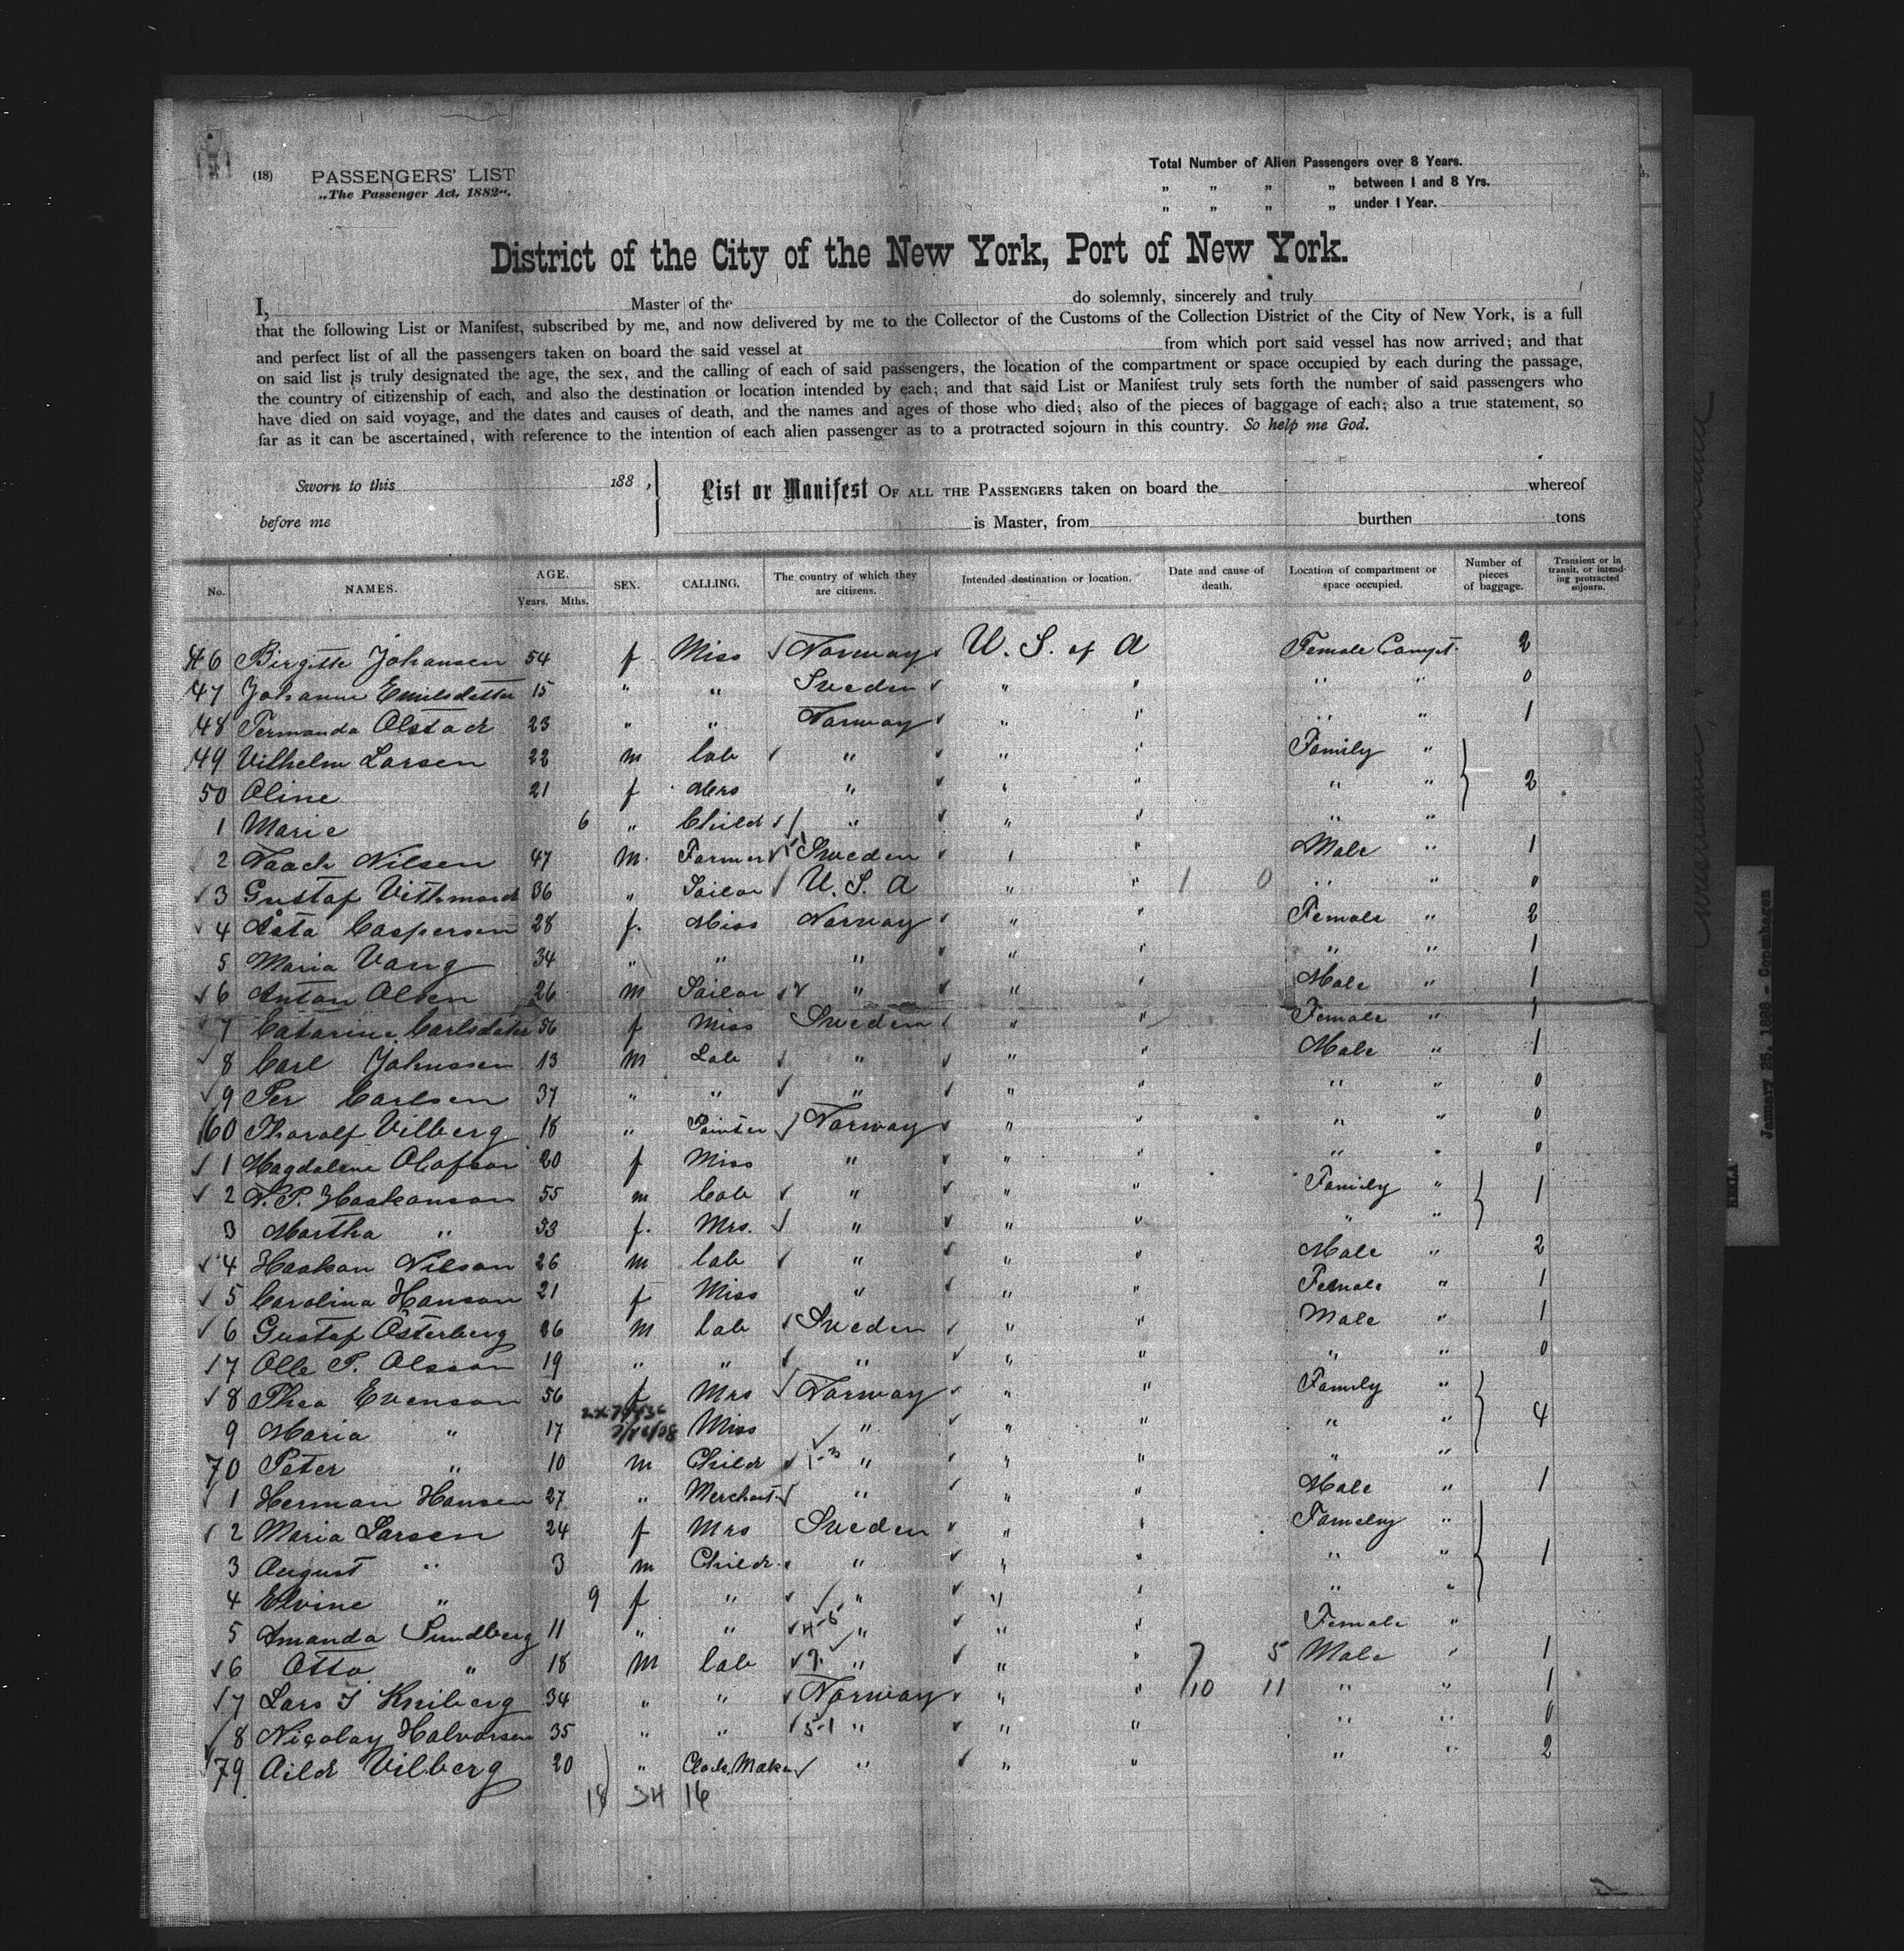 (18) PASSENGERS' LIST
„The Passenger Act, 1882“.
Total Number of Alien Passengers over 8 Years.
„ „ „ „ between 1 and 8 Yrs.
„ „ „ „ under 1 Year.
District of the City of the New York, Port of New York.
I, Master of the do solemnly, sincerely and truly
that the following List or Manifest, subscribed by me, and now delivered by me to the Collector of the Customs of the Collection District of the City of New York, is a full
and perfect list of all the passengers taken on board the said vessel at from which port said vessel has now arrived; and that
on said list is truly designated the age, the sex, and the calling of each of said passengers, the location of the compartment or space occupied by each during the passage,
the country of citizenship of each, and also the destination or location intended by each; and that said List or Manifest truly sets forth the number of said passengers who
have died on said voyage, and the dates and causes of death, and the names and ages of those who died; also of the pieces of baggage of each; also a true statement, so
far as it can be ascertained, with reference to the intention of each alien passenger as to a protracted sojourn in this country. So help me God.
Sworn to this 188 ,
before me
List or Manifest OF ALL THE PASSENGERS taken on board the whereof
is Master, from burthen tons
No. NAMES. AGE. Years. Mths. SEX. CALLING. The country of which they are citizens. Intended destination or location. Date and cause of death. Location of compartment or space occupied. Number of pieces of baggage. Transient or in transit, or intending protracted sojourn.
46 Birgitte Johansen 54 f Miss Norway U. S. of A Female Compt. 2
47 Johanne Emilsdatter 15 " " Sweden " " " " 0
48 Fermanda Olstad 23 " " Norway " " " " 1
49 Vilhelm Larsen 22 m lab " " " Family "
50 Oline 21 f Mrs " " " " " 2
1 Marie 6 " Child " " " " "
2 Nilsen 47 m. Farmer Sweden " " Male " 1
3 Gustaf 36 " Sailor U. S. A " " 1 0 " " 0
4 Asta Caspersen 28 f. Miss Norway " " Female " 2
5 Maria Vang 34 " " " " " " " 1
6 Anton Olsen 26 m Sailor " " " Male " 1
7 Catarine Carlsdater 56 f Miss Sweden " " Female " 1
8 Carl Johnssen 13 m Lab " " " Male " 1
9 Per Carlsen 37 " " " " " " " 0
60 Tharalf Vilberg 18 " Painter Norway " " " " 0
1 Magdalene Olafson 20 f Miss " " " " " 0
2 N. P. Haakanson 55 m Lab " " " Family " 1
3 Martha " 53 f. Mrs. " " " " "
4 Haakan Nilson 26 m lab " " " Male " 2
5 Carolina Hanson 21 f Miss " " " Female " 1
6 Gustaf Österberg 26 m lab Sweden " " Male " 1
7 Olle P. Olsson 19 " " " " " " " 0
8 Thea Evenson 56 f Mrs Norway " " Family "
9 Maria " 17 Miss " " " " " 4
70 Peter " 10 m Child " " " " "
1 Herman Hansen 27 " Merchant " " " Male " 1
2 Maria Larsen 24 f Mrs Sweden " " Famely "
3 August " 3 m Child " " " " " 1
4 Elvine " 9 f " " " " " "
5 Amanda Sundberg 11 " " 4-5 " " " Female "
6 Otto " 18 m lab " " " 5 Male " 1
7 Lars 34 " " Norway " " 10 11 " " 1
8 Nicolay Halvorsen 35 " " 5-1 " " " " " 0
79 Vilberg 20 " Clock Maker " " " " " 2
18 34 16
January 26, 1888 - Copenhagen
HEKLA